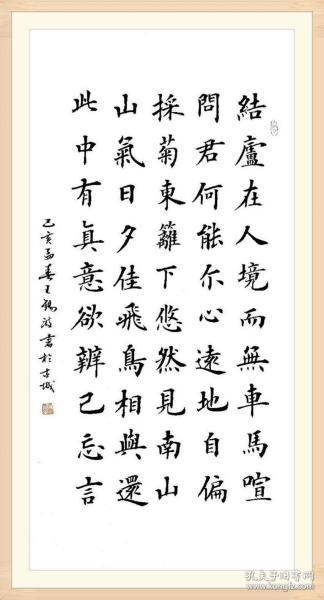 結廬在人境而無車馬喧
問君何能尔心遠地自偏
採菊東籬下悠然見南山
山氣日夕佳飛鳥相與還
此中有真意欲辨己忘言
己亥孟春王 書於京城
孔夫子旧书网